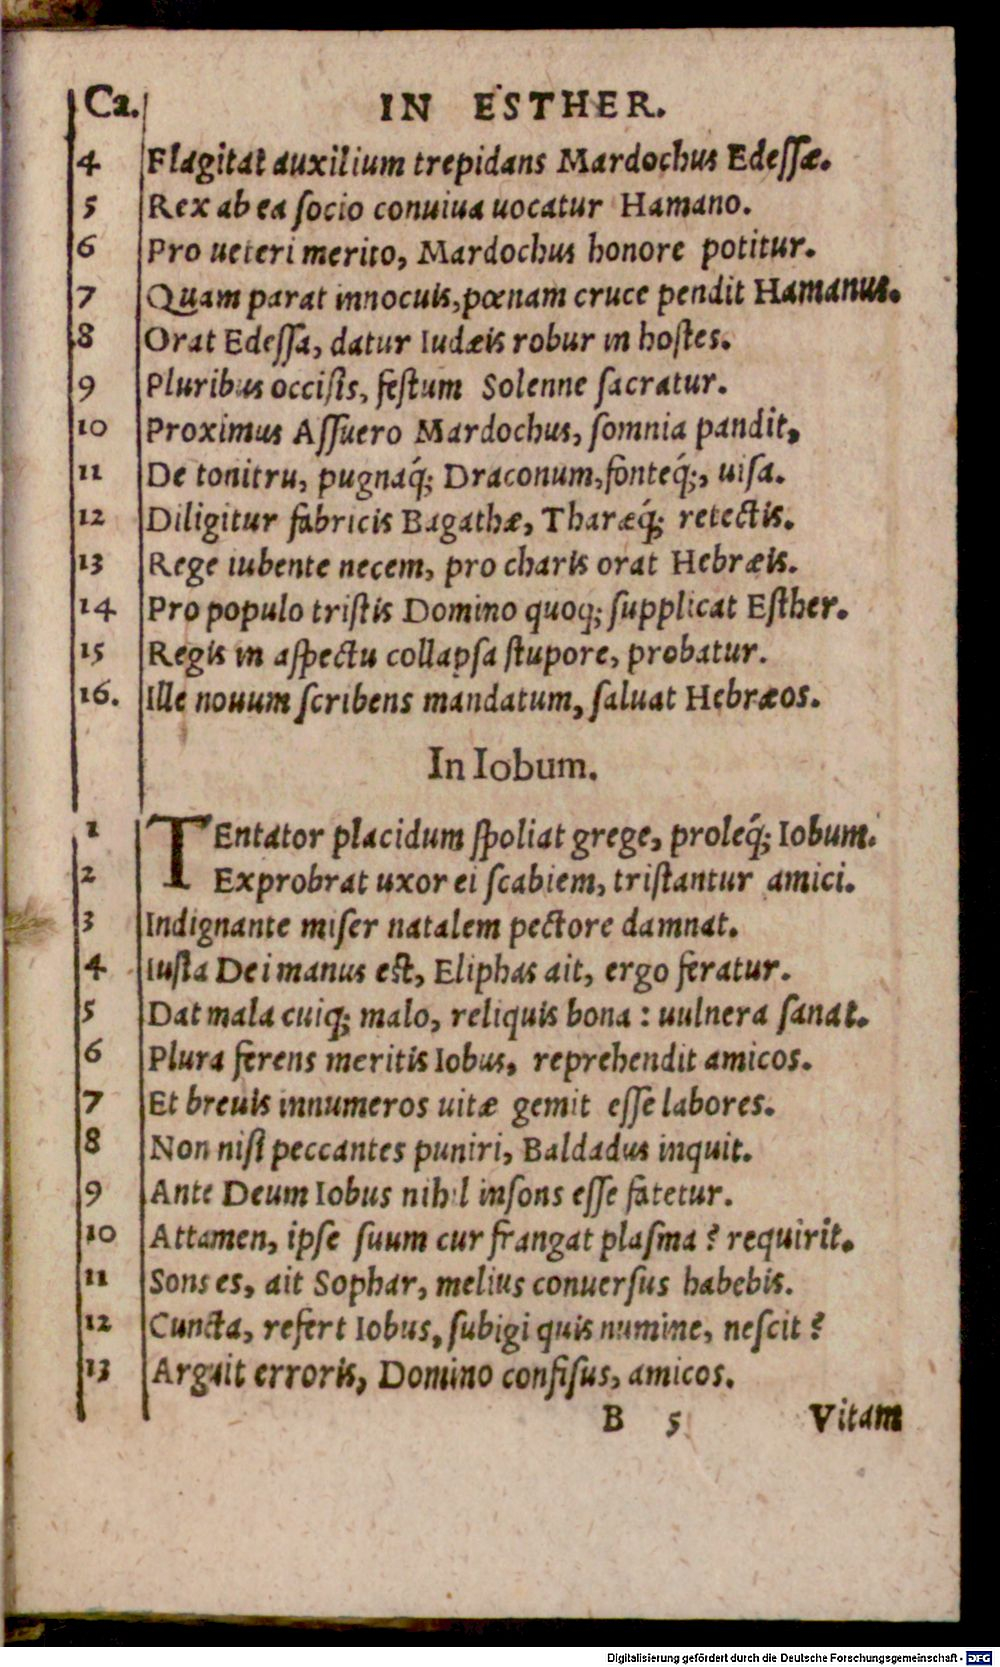 Ca. IN ESTHER.
4 Flagitat auxilium trepidans Mardochus Edessæ.
5 Rex ab ea socio conuiua uocatur Hamano.
6 Pro ueteri merito, Mardochus honore potitur.
7 Quam parat innocuis, pœnam cruce pendit Hamanus.
8 Orat Edessa, datur Iudæis robur in hostes.
9 Pluribus occisis, festum Solenne sacratur.
10 Proximus Assuero Mardochus, somnia pandit,
11 De tonitru, pugnaq́; Draconum, fonteq́;, uisa.
12 Diligitur fabricis Bagathæ, Tharæq́; retectis.
13 Rege iubente necem, pro charis orat Hebræis.
14 Pro populo tristis Domino quoq; supplicat Esther.
15 Regis in aspectu collapsa stupore, probatur.
16. Ille nouum scribens mandatum, saluat Hebræos.
In Iobum.
1 TEntator placidum spoliat grege, proleq́; Iobum.
2 Exprobrat uxor ei scabiem, tristantur amici.
3 Indignante miser natalem pectore damnat.
4 Iusta Dei manus est, Eliphas ait, ergo feratur.
5 Dat mala cuiq; malo, reliquis bona : uulnera sanat.
6 Plura ferens meritis Iobus, reprehendit amicos.
7 Et breuis innumeros uitæ gemit esse labores.
8 Non nisi peccantes puniri, Baldadus inquit.
9 Ante Deum Iobus nihil insons esse fatetur.
10 Attamen, ipse suum cur frangat plasma ? requirit.
11 Sons es, ait Sophar, melius conuersus habebis.
12 Cuncta, refert Iobus, subigi quis numine, nescit ?
13 Arguit erroris, Domino confisus, amicos.
B 5 Vitam
Digitalisierung gefördert durch die Deutsche Forschungsgemeinschaft - DFG